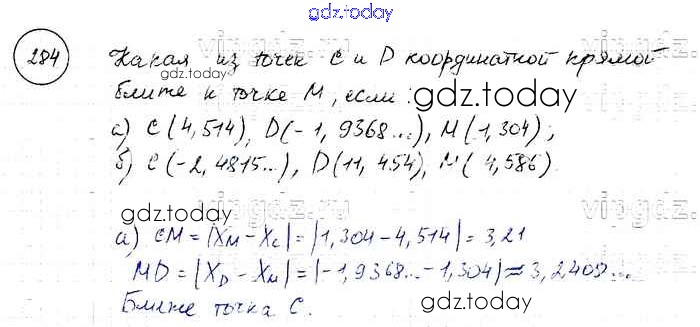 gdz.today
284 Какая из точек C и D координатной прямой
gdz.today
ближе к точке M, если:
gdz.today
а) C(4,514), D(-1,9368...), M(1,304);
б) C(-2,4815...), D(11,454), M(4,586)
gdz.today
а) CM = |X_M - X_C| = |1,304 - 4,514| = 3,21
MD = |X_D - X_M| = |-1,9368... - 1,304| ≈ 3,2409...
Ближе точка C.
gdz.today